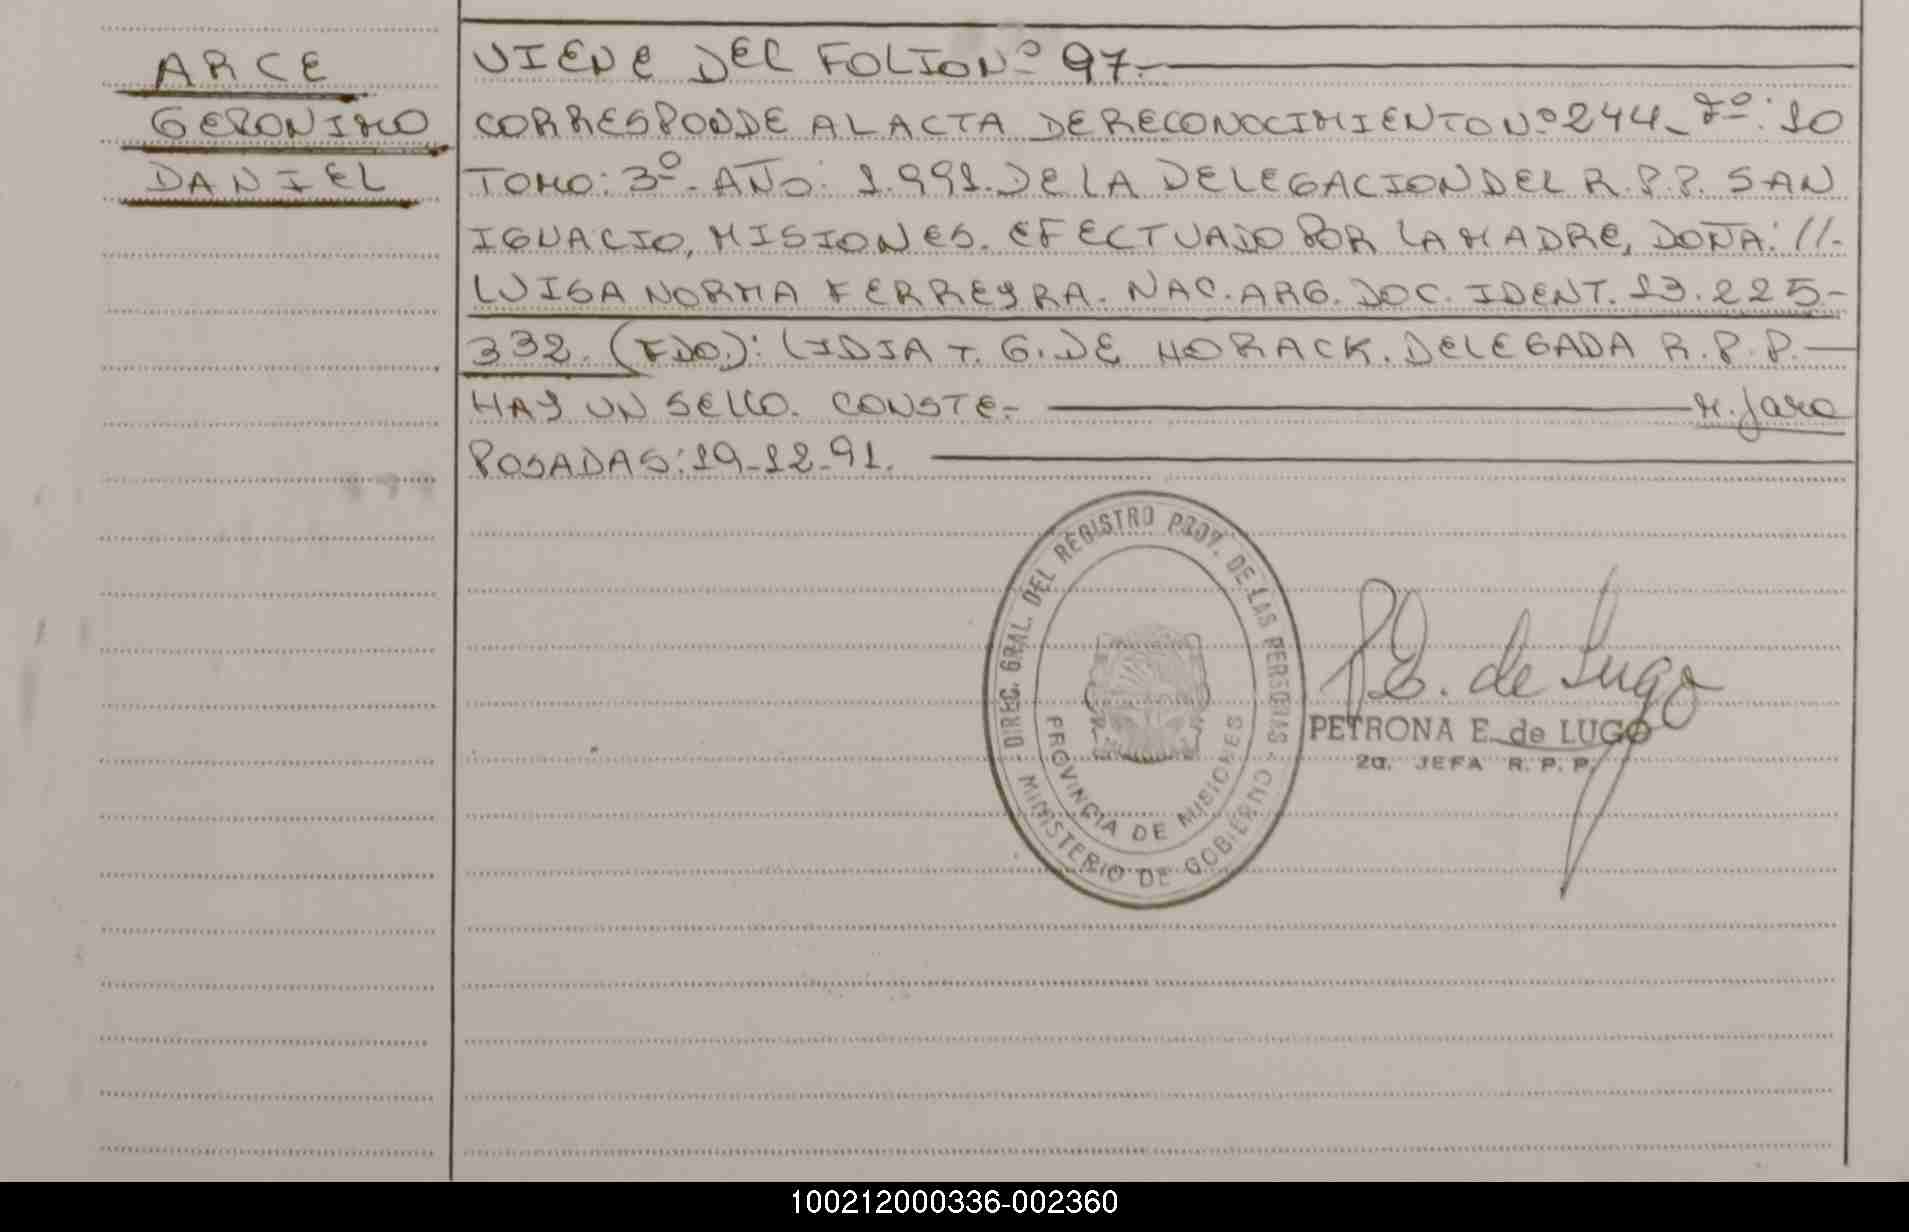 ARCE
GERONIMO
DANIEL
VIENE DEL FOLIO Nº 97.-
CORRESPONDE AL ACTA DE RECONOCIMIENTO Nº 244_ Fº: 10
TOMO: 3º. AÑO: 1.991. DE LA DELEGACION DEL R.P.P. SAN
IGNACIO, MISIONES. EFECTUADO POR LA MADRE, DOÑA: //-
LUISA NORMA FERREYRA. NAC. ARG. DOC. IDENT. 13.225-
332. (FDO.): LIDIA T. G. DE HORACK. DELEGADA R.P.P.
HAY UN SELLO. CONSTE.- M. Jara
POSADAS: 19-12-91.
DIREC. GRAL. DEL REGISTRO PROV. DE LAS PERSONAS
MINISTERIO DE GOBIERNO
PROVINCIA DE MISIONES
P.E. de Lugo
PETRONA E. de LUGO
2a. JEFA R.P.P.
100212000336-002360